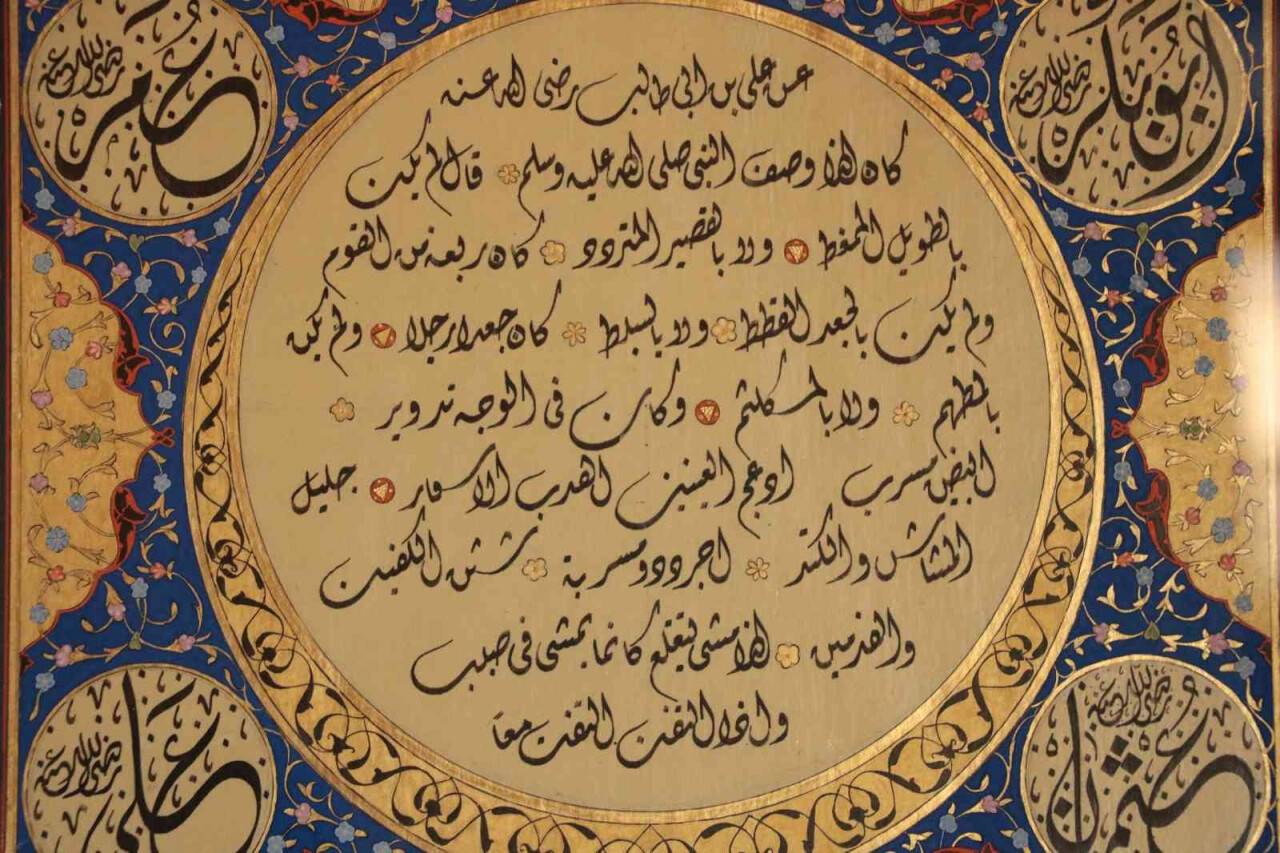 ابو بكر رضى الله عنه
عمر رضى الله عنه
عن على بن ابى طالب رضى الله عنه
كان اذا وصف النبى صلى الله عليه وسلم قال لم يكن
بالطويل الممغط ولا بالقصير المتردد كان ربعة من القوم
ولم يكن بالجعد القطط ولا بالسبط كان جعدا رجلا ولم يكن
بالمطهم ولا بالمكلثم وكان فى الوجه تدوير
ابيض مشرب ادعج العينين اهدب الاشفار جليل
المشاش والكتد اجرد ذو مسربة شثن الكفين
والقدمين اذا مشى يتقلع كانما يمشى فى صبب
واذا التفت التفت معا
عثمان رضى الله عنه
على رضى الله عنه